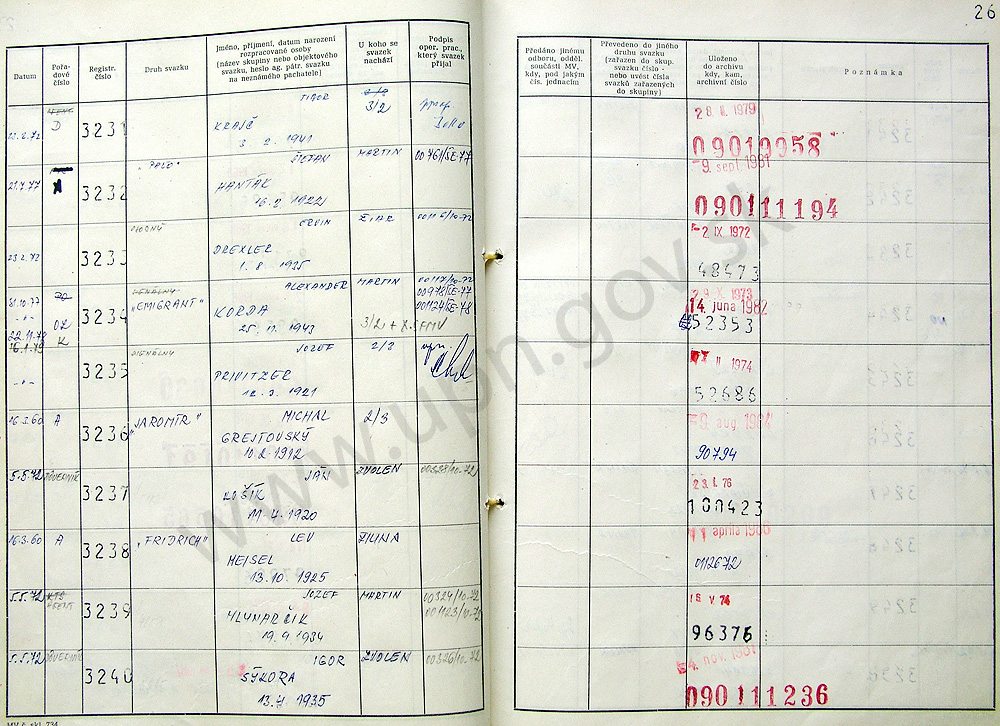 26
Datum
Pořa-
dové
číslo
Registr.
číslo
Druh svazku
Jméno, příjmení, datum narození
rozpracované osoby
(název skupiny nebo objektového
svazku, heslo ag. pátr. svazku
na neznámého pachatele)
U koho se
svazek
nachází
Podpis
oper. prac.,
který svazek
přijal
Předáno jinému
odboru, odděl.
součásti MV,
kdy, pod jakým
čís. jednacím
Převedeno do jiného
druhu svazku
(zařazen do skup.
svazku číslo -
nebo uvést čísla
svazků zařazených
do skupiny)
Uloženo
do archivu
kdy, kam,
archivní číslo
Poznámka
D
3231
KRAJČ
3. 2. 1941
3/2
1979
09019958
21.4.77
3232
"PALO"
ŠTEFAN
HANTÁK
1922
MARTIN
00761/ŠE-77
-9. sept. 1981
090111194
23.2.72
3233
ERVIN
DREXLER
1. 8. 1925
ŽIAR
2 IX. 1972
48473
31.10.77
22.11.78
16.1.79
OZ
K
3234
"EMIGRANT"
ALEXANDER
KORDA
1943
MARTIN
3/2
00978/ŠE-77
00124/ŠE-78
1973
14. júna 1982
52353
3235
JOZEF
PRIVITZER
1921
2/2
II 1974
52686
16.3.60
A
3236
"JAROMÍR"
MICHAL
GREJTOVSKÝ
10.2.1912
2/3
9. aug. 1984
90794
5.5.72
DÔVERNÍK
3237
JÁN
LOŠÍK
11.4.1920
ZVOLEN
00328/10-72
23. I. 76
100423
16.3.60
A
3238
"FRIDRICH"
LEV
HEISEL
13.10.1925
ŽILINA
11 apríla 1980
0112672
5.5.72
KTS
AGENT
3239
JOZEF
MLYNARČÍK
19.9.1934
MARTIN
00324/10-72
V. 74
96376
5.5.72
DÔVERNÍK
3240
IGOR
SÝKORA
13.4.1935
ZVOLEN
00326/10-72
4. nov. 1981
090111236
www.upn.gov.sk